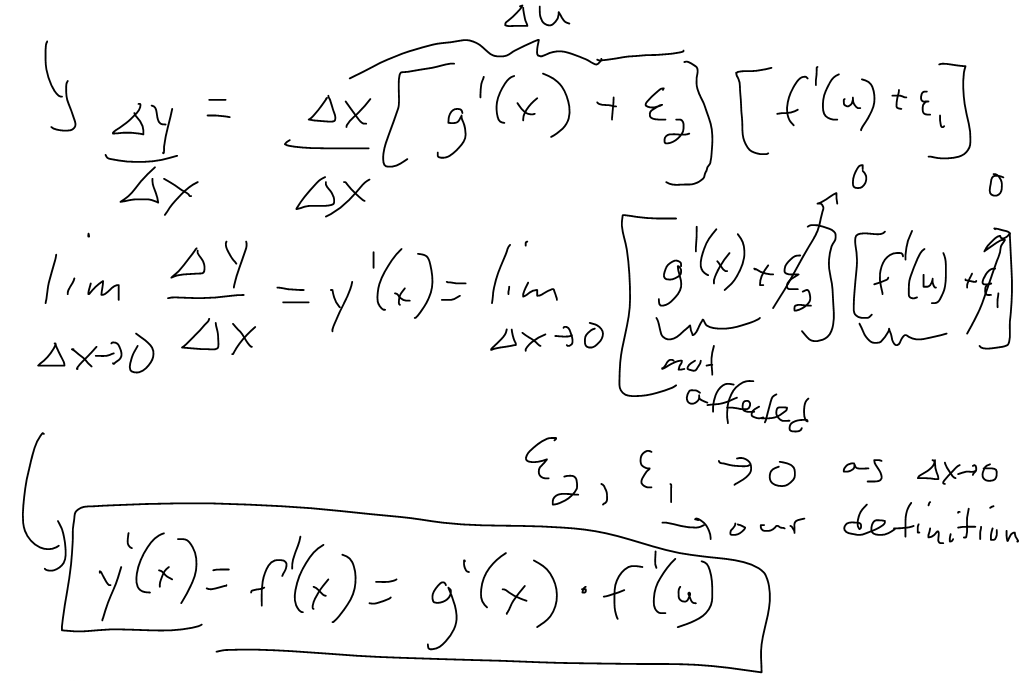 Δu
Δy/Δx = Δx/Δx [g'(x) + ε₂] [f'(u) + ε₁]
0 0
lim Δx→0 Δy/Δx = y'(x) = lim Δx→0 [g'(x) + ε₂] [f'(u) + ε₁]
not
affected
ε₂, ε₁ → 0 as Δx→0
→ our definition
y'(x) = f'(x) = g'(x) · f'(u)